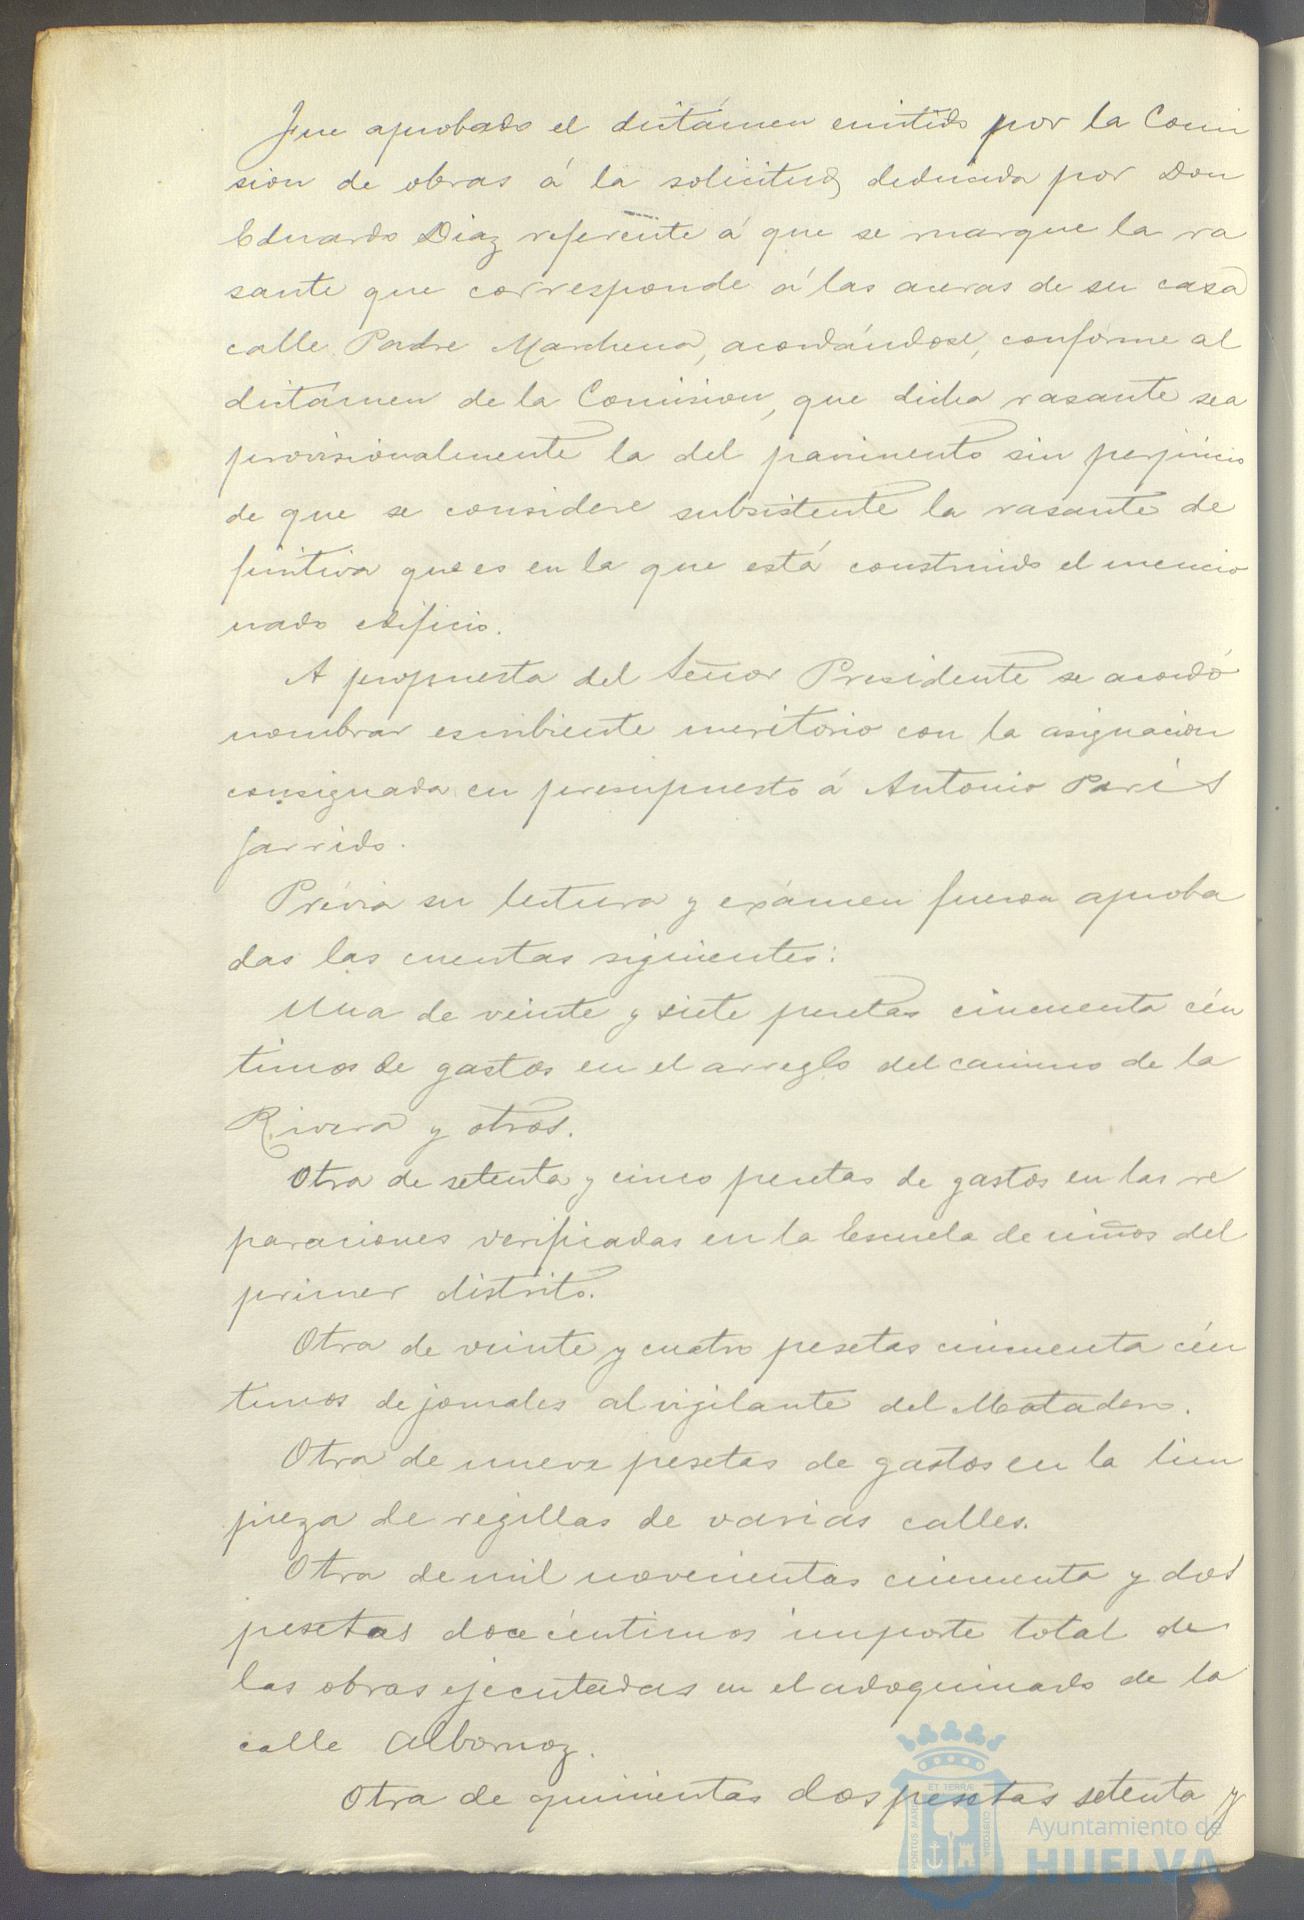 Fue aprobado el dictámen emitido por la Comi
sion de obras á la solicitud deducida por Don
Eduardo Diaz referente á que se marque la ra
sante que corresponde á las aceras de su casa
calle Padre Marchena, acordándose, conforme al
dictámen de la Comision, que dicha rasante sea
provisionalmente la del pavimento sin perjuicio
de que se considere subsistente la rasante de
finitiva que es en la que está construido el mencio
nado edificio.
A propuesta del Señor Presidente se acordó
nombrar escribiente meritorio con la asignacion
consignada en presupuesto á Antonio Paris
Garrido.
Prévia su lectura y exámen fueron aproba
das las cuentas siguientes:
Una de veinte y siete pesetas cincuenta cén
timos de gastos en el arreglo del camino de la
Rivera y otros.
Otra de setenta y cinco pesetas de gastos en las re
paraciones verificadas en la Escuela de niños del
primer distrito.
Otra de veinte y cuatro pesetas cincuenta cén
timos de jornales al vigilante del Matadero.
Otra de nueve pesetas de gastos en la lim
pieza de regillas de varias calles.
Otra de mil novecientas cincuenta y dos
pesetas doce céntimos importe total de
las obras ejecutadas en el adoquinado de la
calle Albornoz.
Otra de quinientas dos pesetas setenta y
PORTUS MARIS ET TERRÆ CUSTODIA
Ayuntamiento de
HUELVA